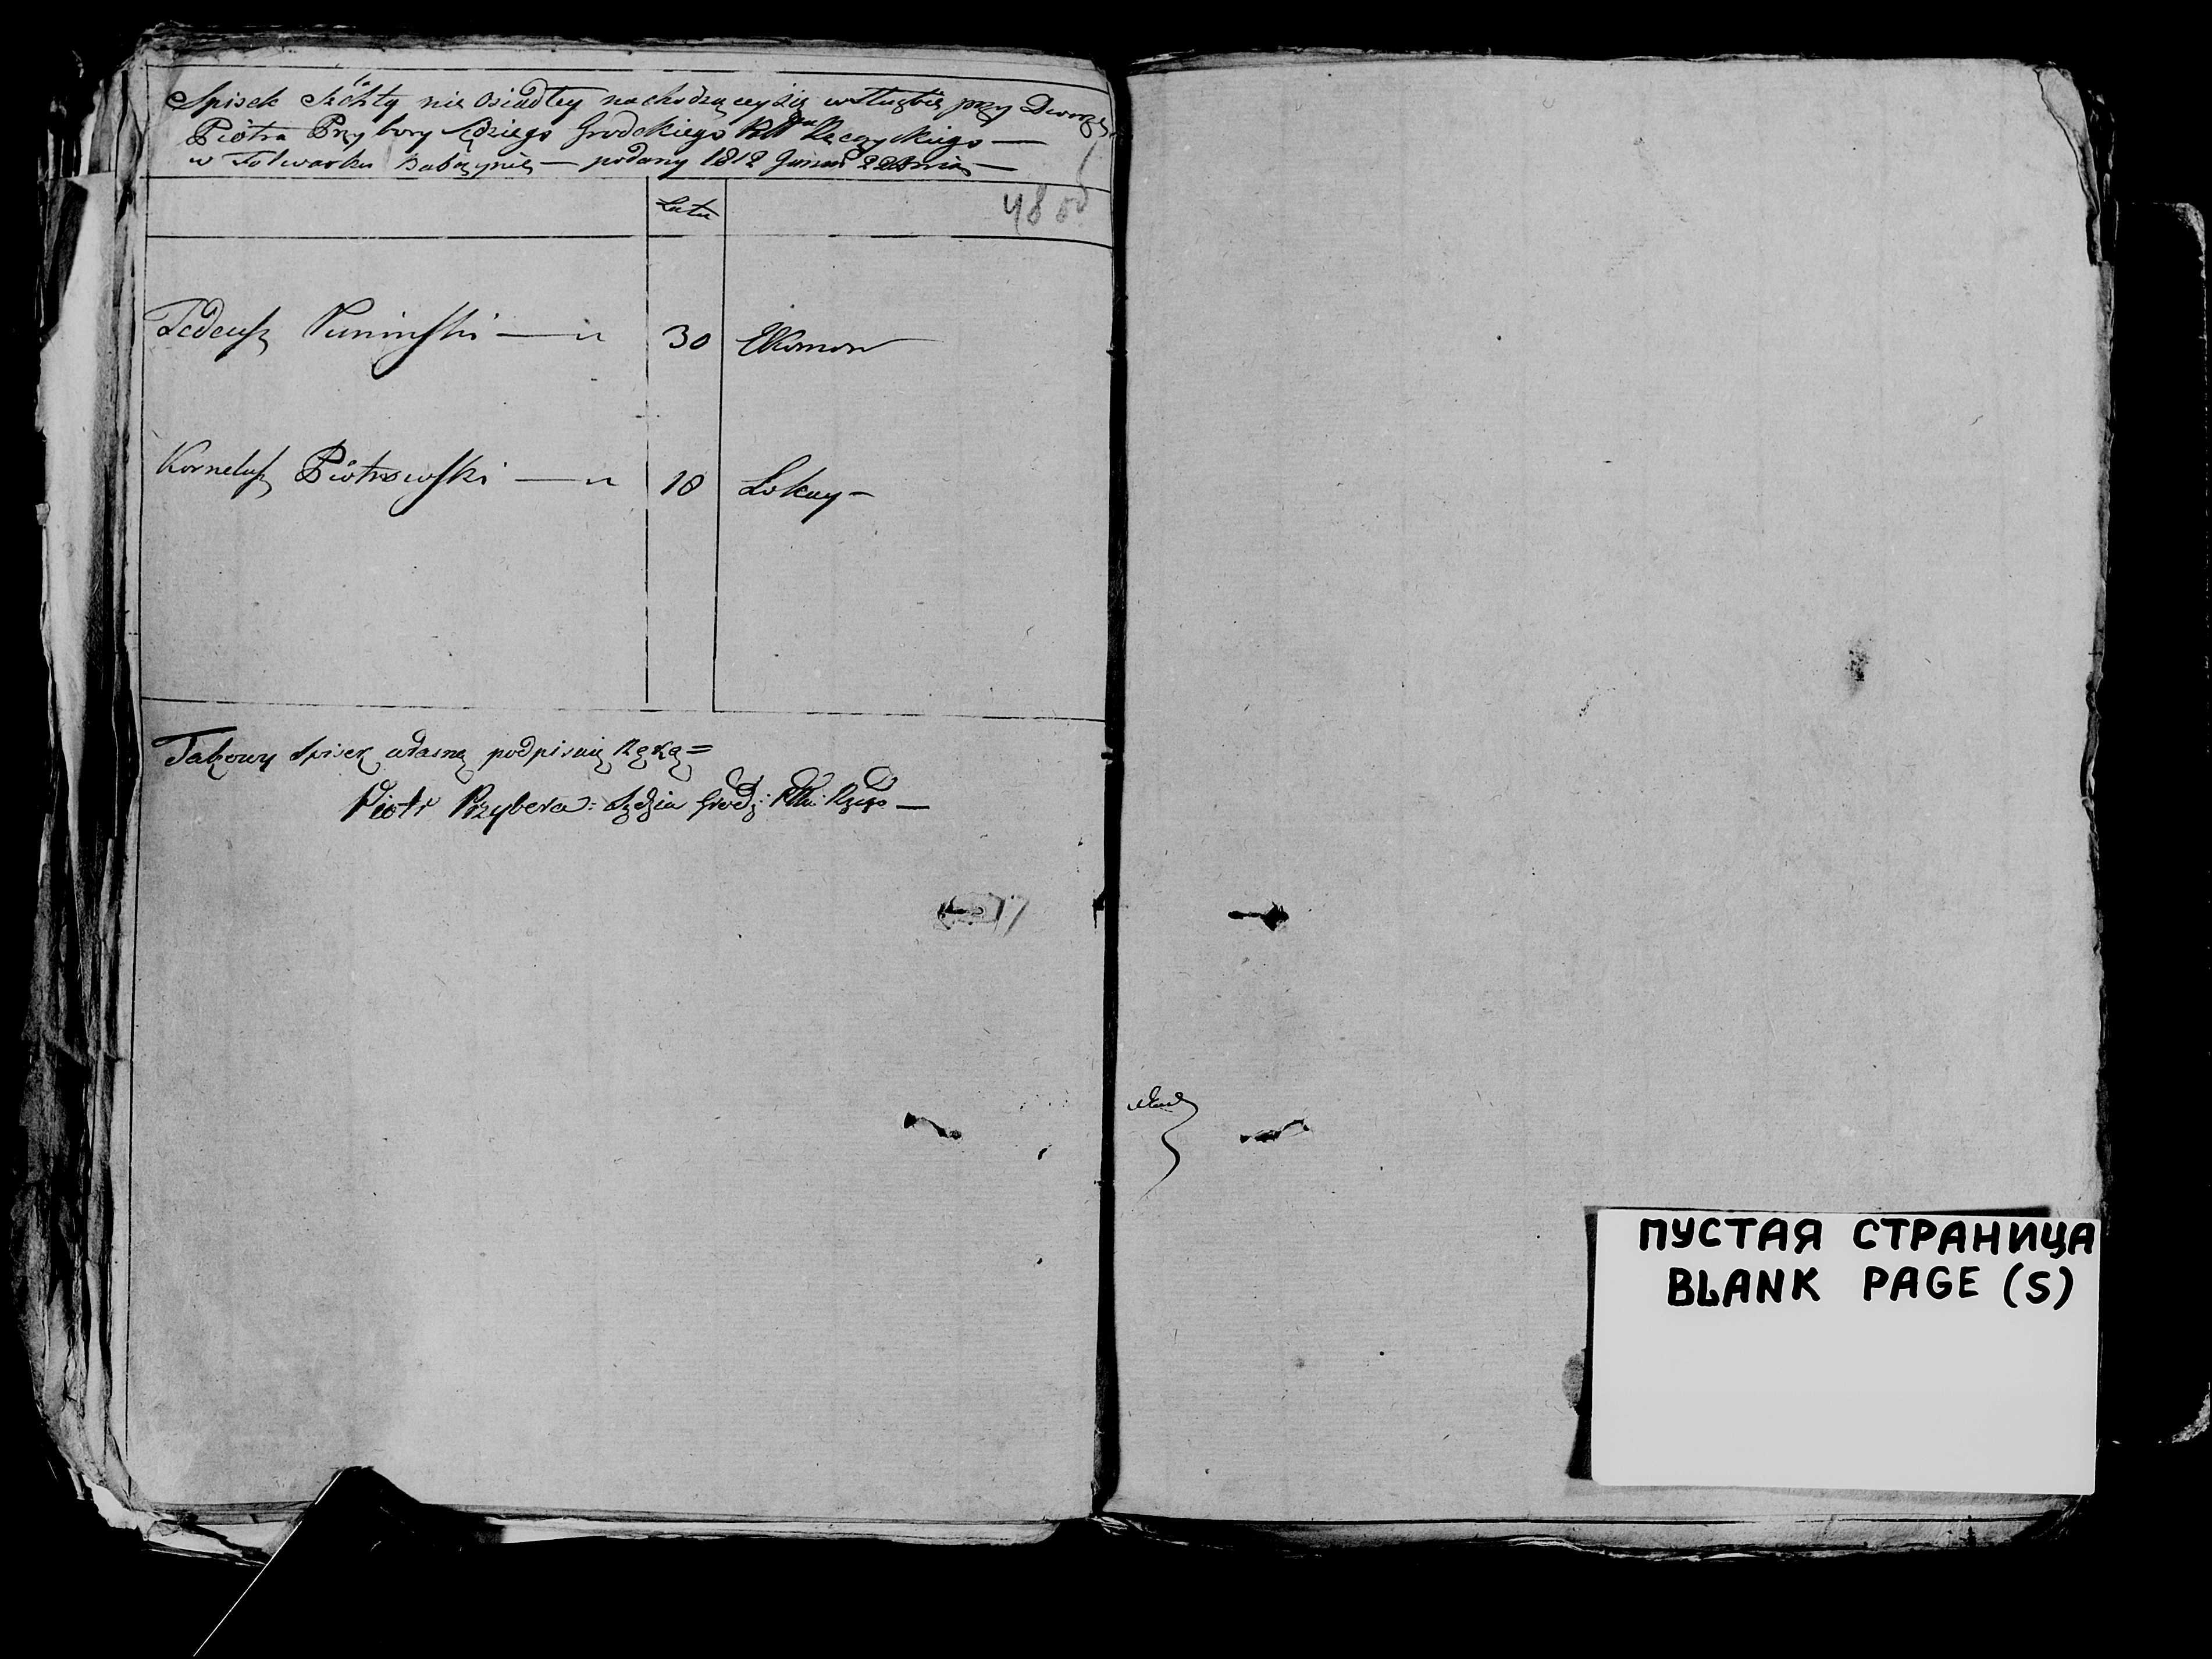 Spisek Szlchty nie Osiadłey nachodzącey się w służbie przy Dworze
Piotra Przybory Sędziego Grodzkiego Pttu Rzeczyckiego —
w Folwarku Babczynie — podany 1812 Januar 22 dnia —
Lata
48 об
Tedeusz Puninski — 30 Ekonom
Korneliusz Piotrowski — 18 Lokay —
Takowy spisek własną podpisuię Ręką =
Piotr Przybora: Sędzia Grodz: Pttu Rzego —
ПУСТАЯ СТРАНИЦА
BLANK PAGE (S)